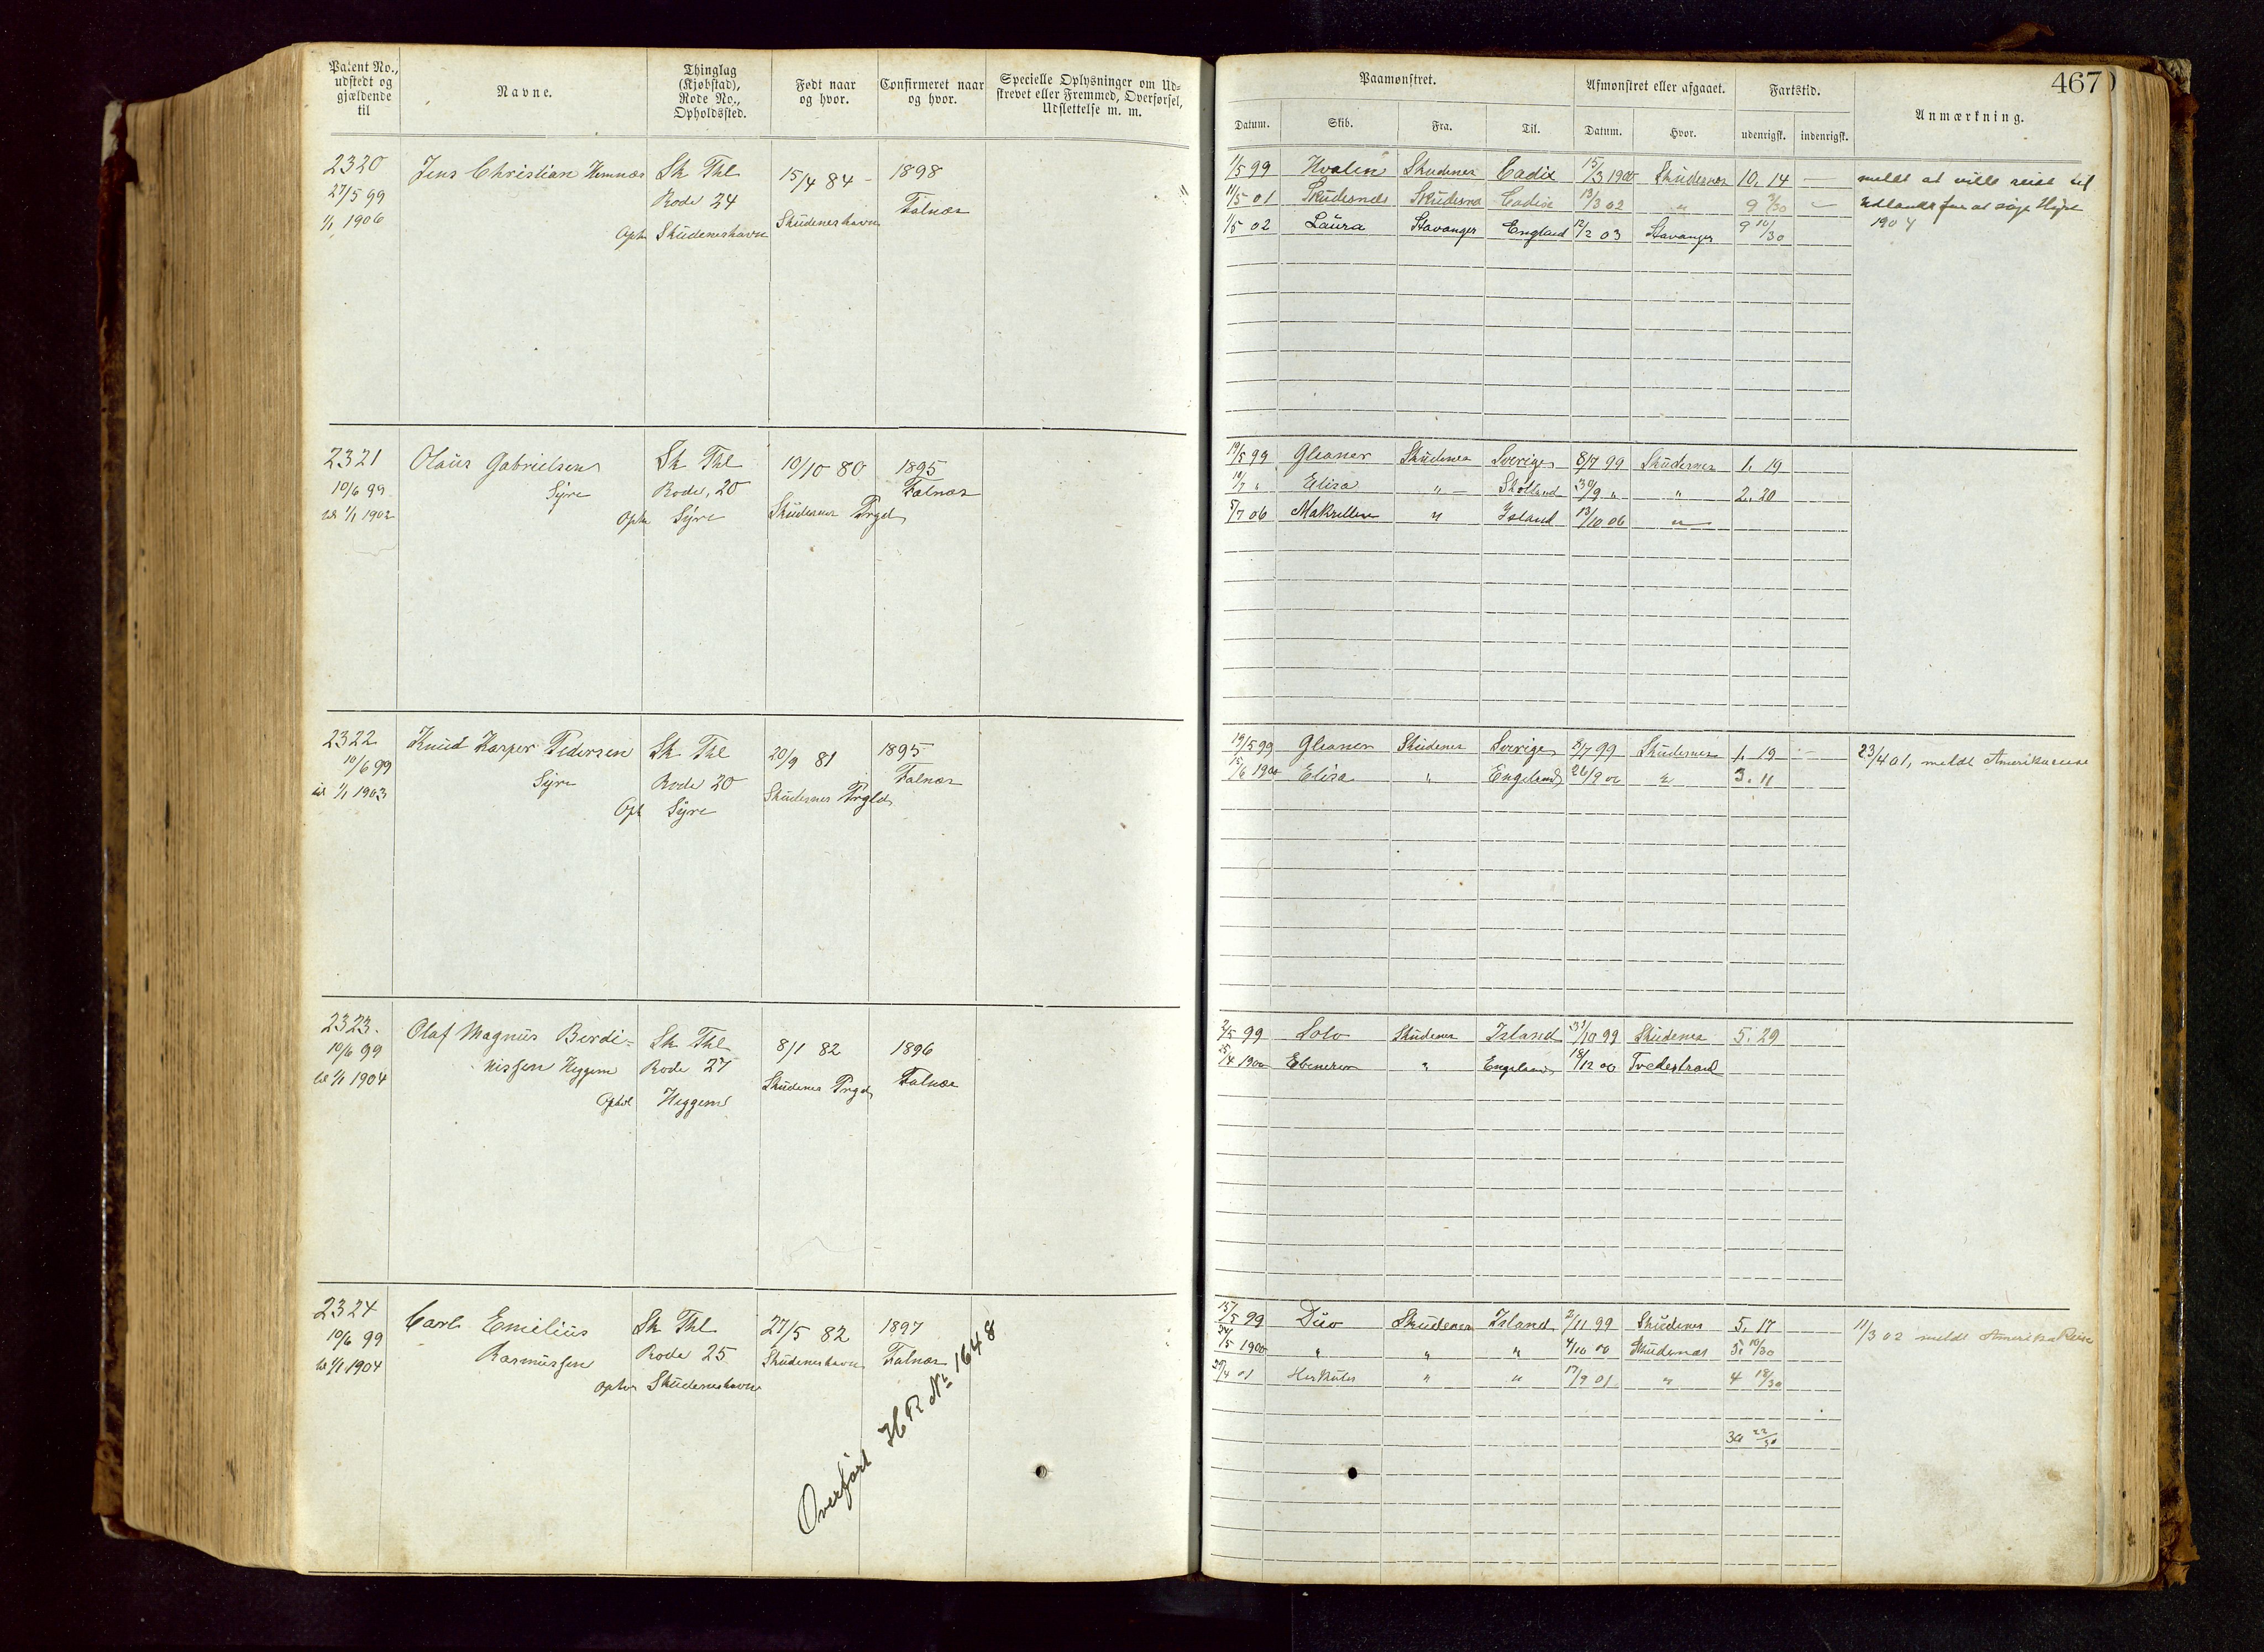 Patent No., udstedt og gjældende til
Navne.
Thinglag (Kjøbstad), Rode No., Opholdssted.
Født naar og hvor.
Confirmeret naar og hvor.
Specielle Oplysninger om Udskrevet eller Fremmed, Overførsel, Udslettelse m. m.
Paamønstret.
Afmønstret eller afgaaet.
Fartstid.
Anmærkning.
467
Datum. Skib. Fra. Til. Datum. Hvor. udenrigsk. indenrigsk.
2320 Jens Christian Hemnæs Sk Thl 15/4 84 - 1898
27/5 99 Rode 24 Skudeneshavn Falnæs
1/1 1906 Oph Skudeneshavn
1/5 99 Hvalen Skudenes Cadix 15/3 1900 Skudesnes 10. 14 —
11/5 01 Skudesnæs Skudesnæs Cadix 13/3 02 " 9 2/30 —
1/5 02 Laura Stavanger England 12/2 03 Stavanger 9 10/30
meldt at ville reise til
Udlandet for at søge Hyre
1904
2321 Olaus Gabrielsen Sk Thl 10/10 80 1895
10/6 99 Syre Rode, 20 Skudesnes Prgd Falnæs
til 1/1 1902 Opho Syre
19/5 99 Gleaner Skudenes Sverige 8/7 99 Skudesnes 1. 19
10/7 " Elisa " — Skotland 30/9 " " 2. 20
5/7 06 Makrellen " Island 13/10 06 "
2322 Knud Kasper Pedersen Sk Thl 20/9 81 1895
10/6 99 Syre Rode 20 Skudesnes Prgld Falnæs
til 1/1 1903 Oph Syre
19/5 99 Gleaner Skudenes Sverige 8/7 99 Skudesnes 1. 19 —
15/6 1900 Elisa " England 26/9 00 " 3. 11
23/4 01, meldt Amerikareise
2323. Olaf Magnus Berdi- Sk Thl 8/1 82 1896
10/6 99 nissen Heggem Rode 27 Skudenes Prgd Falnæs
til 1/1 1904 Ophol Heggem
2/5 99 Solo Skudenes Island 31/10 99 Skudenes 5. 29
25/4 1900 Ebeneser " England 18/12 00 Tvedestrand
2324 Carl Emilius Sk Thl 27/5 82 1897
10/6 99 Rasmussen Rode 25 Skudeneshavn Falnæs
til 1/1 1904 Opho Skudeneshavn
Overført H R No 1648
15/5 99 Duo Skudenes Island 2/11 99 Skudenes 5. 17
24/5 1900 " " " 4/10 00 Skudenæs 5. 10/30
29/4 01 Herkules " " 17/9 01 " 4 18/30
22/30
11/3 02 meldt Amerika Reise